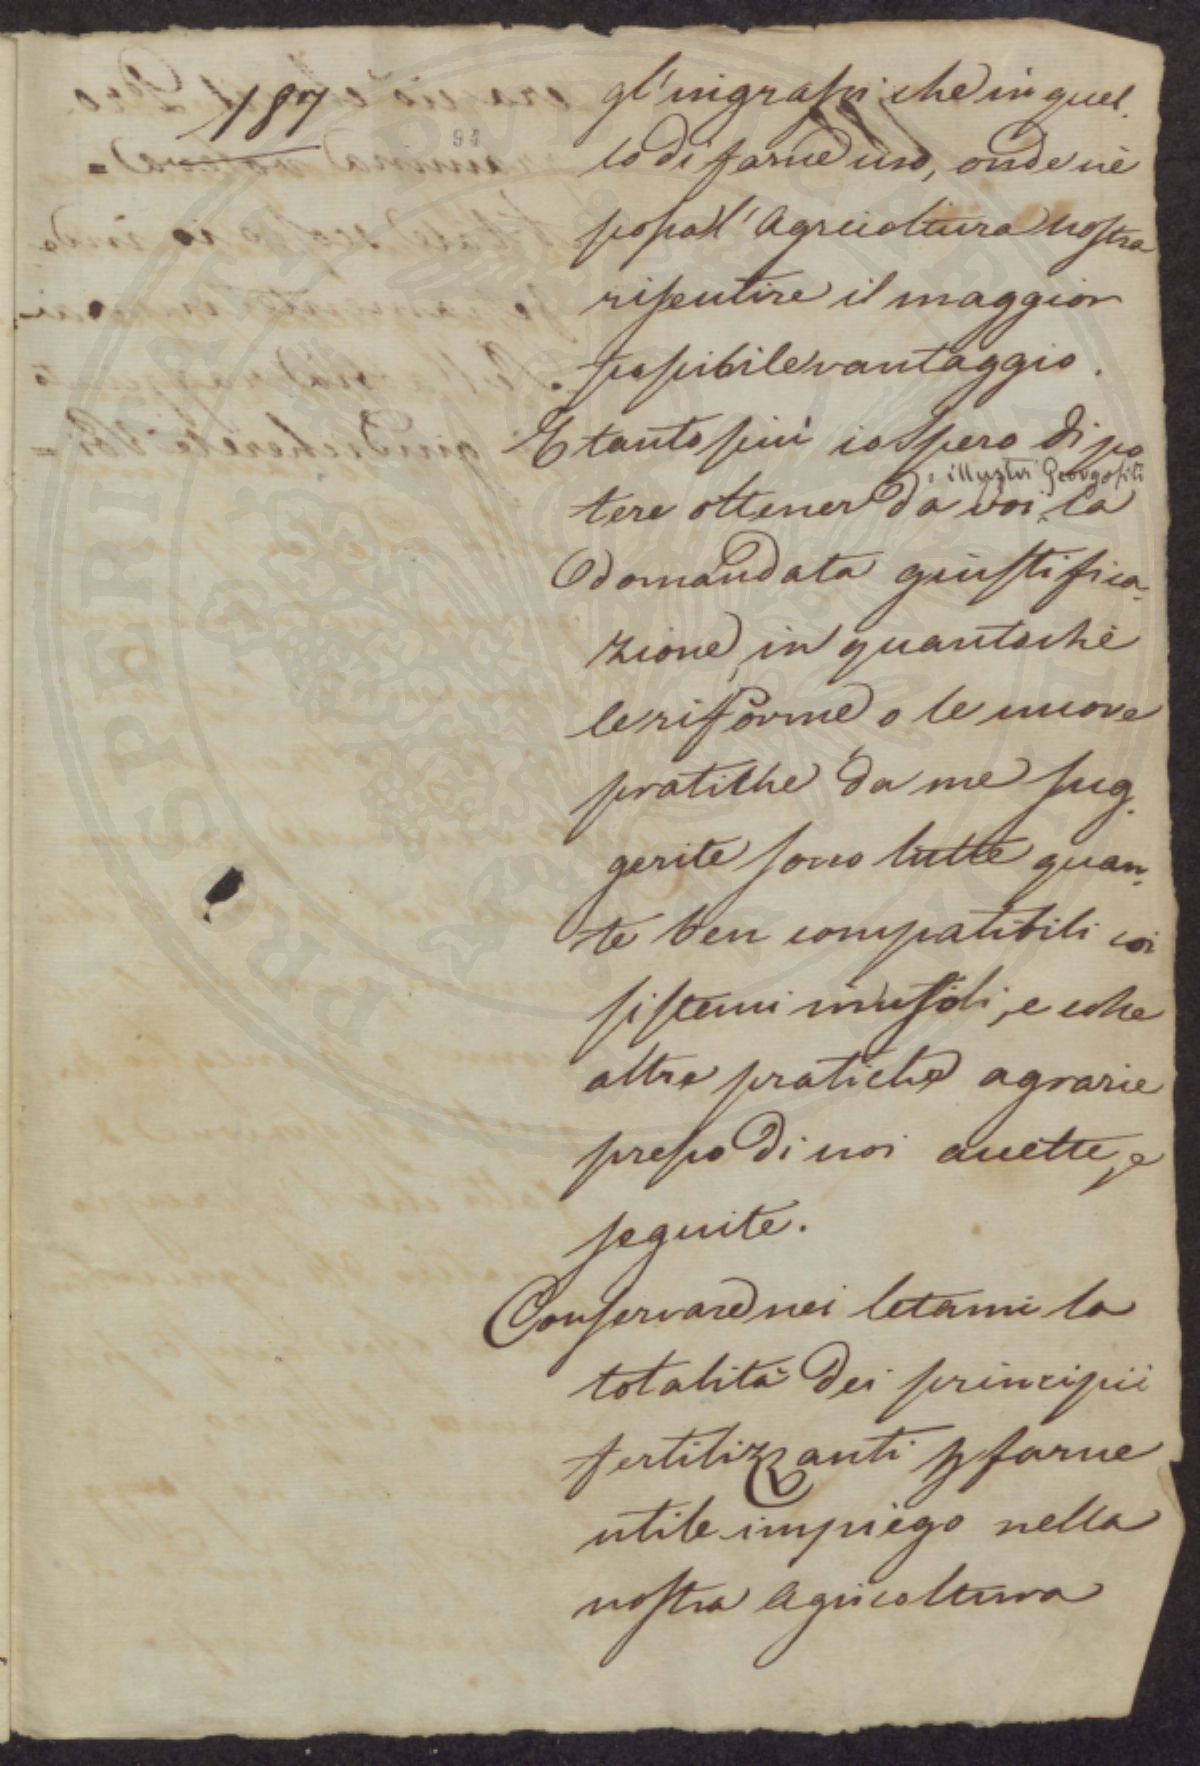 187
94
gl'ingrassi che in quel-
lo di farne uso, onde nè
possa l'Agricoltura nostra
risentire il maggior
possibile vantaggio.
E tanto più io spero di po
, illustri Georgofili
tere ottener da voi la
domandata giustifica-
zione, in quantochè
le riforme o le nuove
pratiche da me sug-
gerite sono tutte quan-
te ben compatibili coi
sistemi, e colle
altre pratiche agrarie
presso di noi accette, e
seguite.
Conservare nei letami la
totalità dei principii
fertilizzanti farne
utile impiego nella
nostra Agricoltura
PROSPERITATI PUBLICAE AUGENDAE